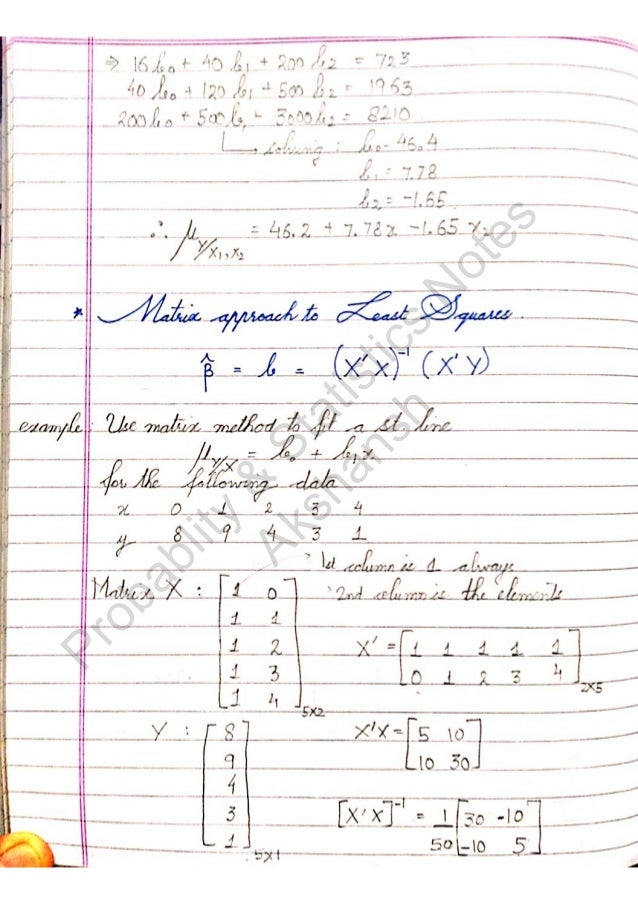 ⇒ 16b₀ + 40b₁ + 200b₂ = 723
40b₀ + 120b₁ + 500b₂ = 1963
200b₀ + 500b₁ + 3000b₂ = 8210
solving : b₀ = 46.4
b₁ = 7.78
b₂ = -1.65
∴ μ Y/X₁,X₂ = 46.2 + 7.78x - 1.65 x₂
* Matrix approach to Least Squares.
β̂ = b = (X'X)⁻¹ (X'Y)
example : Use matrix method to fit a st. line
μ Y/X = b₀ + b₁x
for the following data
x 0 1 2 3 4
y 8 9 4 3 1
: 1st column is 1 always
Matrix X : [1 0 : 2nd column is the elements
1 1
1 2 X' = [1 1 1 1 1
1 3 0 1 2 3 4] 2X5
1 4] 5X2
Y : [8 X'X = [5 10
9 10 30]
4
3 [X'X]⁻¹ = 1/50 [30 -10
1] 5X1 -10 5]
Probablity & Statistics Notes
Akshansh